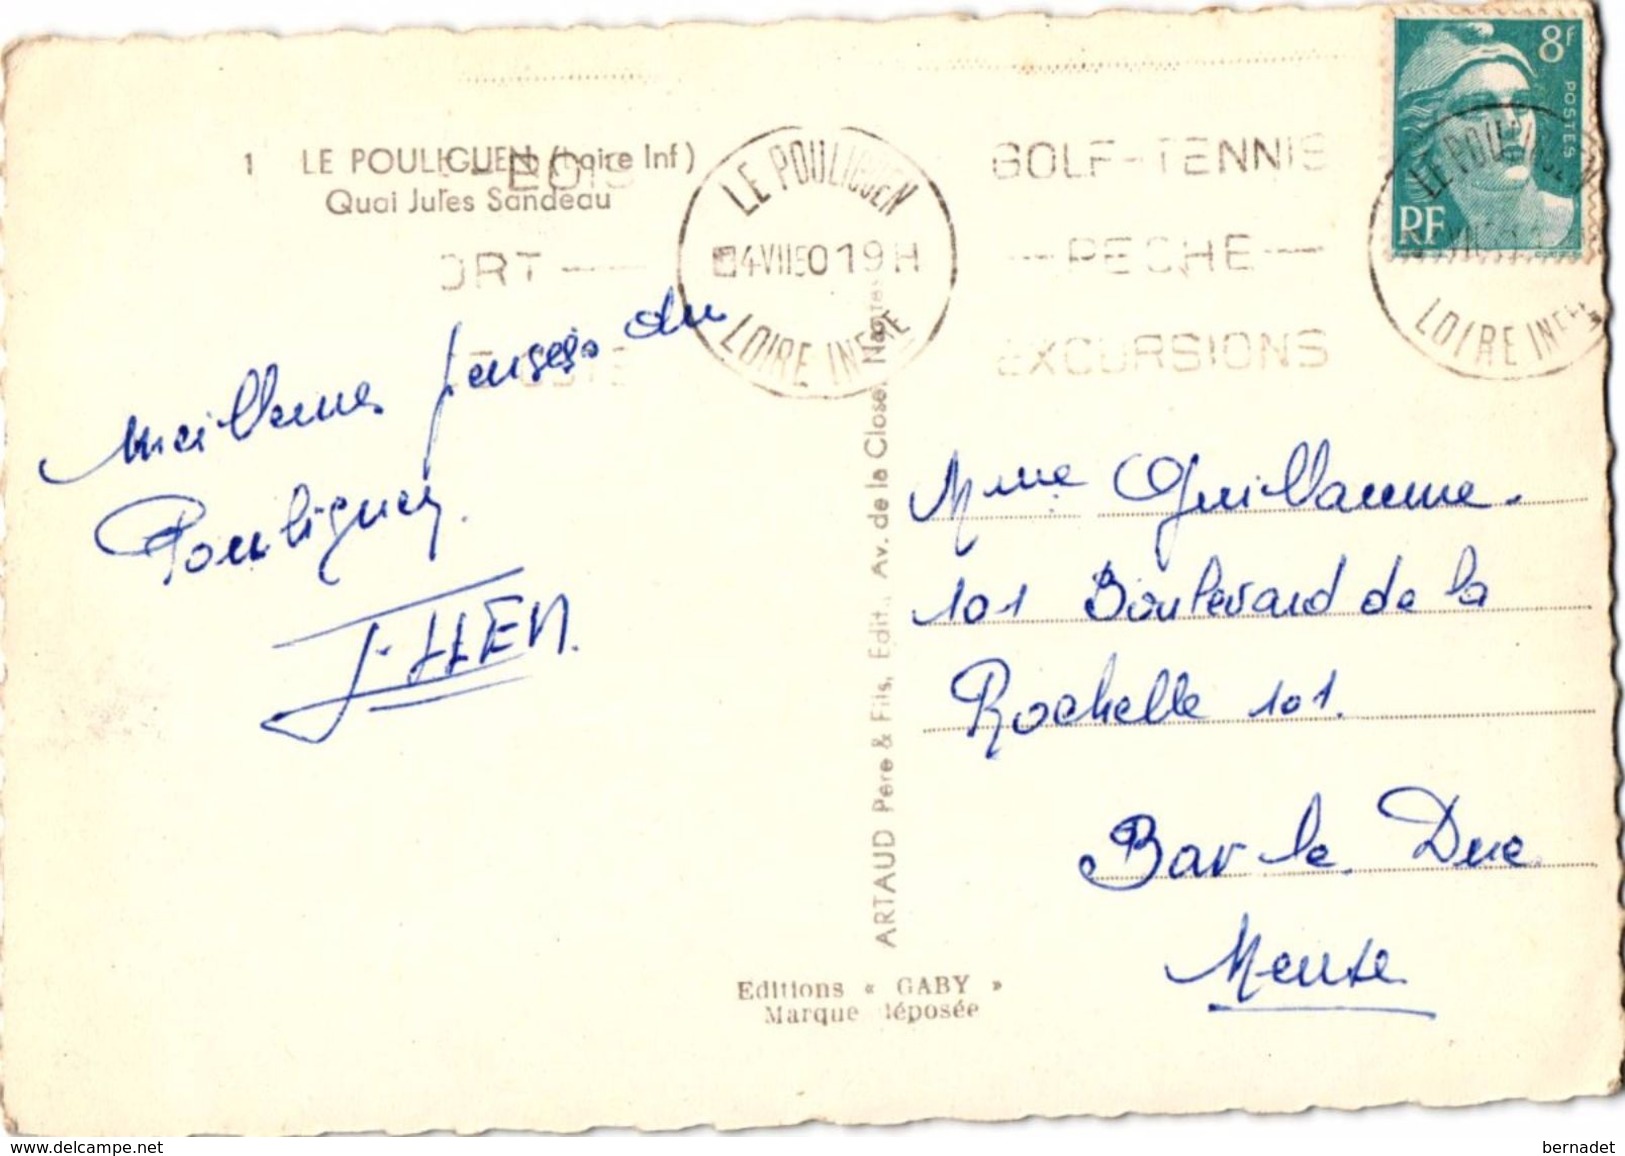 1 LE POULIGUEN (Loire Inf)
Quai Jules Sandeau
BOIS
ORT —
LE POULIGUEN
4-VII50 19H
LOIRE INFRE
GOLF-TENNIS
— PECHE —
EXCURSIONS
8F
POSTES
RF
LE POULIGUEN
LOIRE INFRE
Meilleures pensées du
Pouliguen.
Mme Guillaume.
101 Boulevard de la
Rochelle 101.
Bar le Duc
Meuse
ARTAUD Père & Fils, Edit., Av. de la Close, Nantes
Editions « GABY »
Marque déposée
http://www.delcampe.net
bernadet